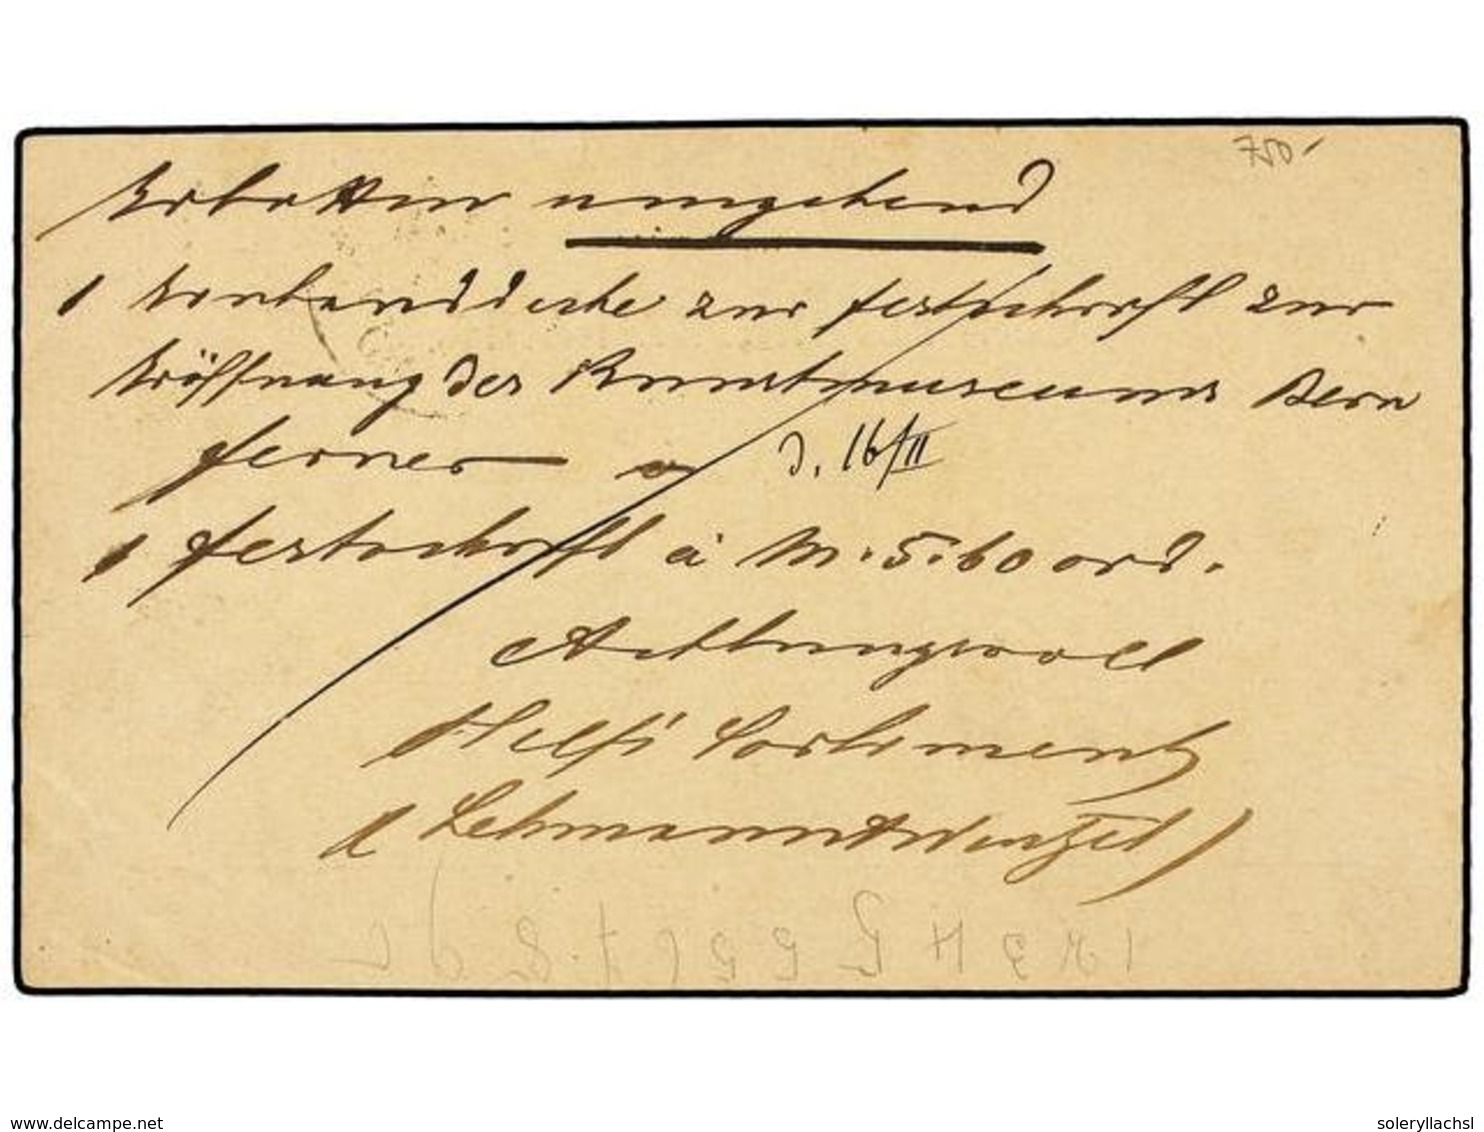 750.-
Erbitten umgehend
1 Einbanddecke zur Festschrift zur
Eröffnung des Kunstmuseums Bern
ferner
d. 16/II
1 Festschrift à M. 5.60 ord.
Achtungsvoll
Sortiment
Lehmann
www.delcampe.net
soleryllachsl